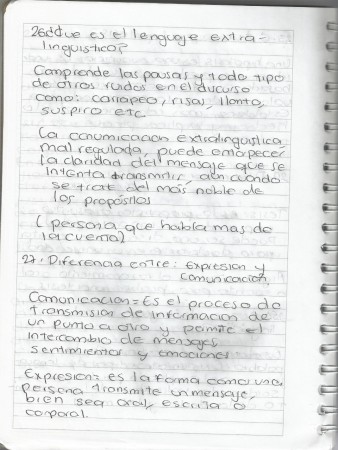 26¿Que es el lenguaje extra-
linguistico?
Comprende las pausas y todo tipo
de otros ruidos en el discurso
como: carraspeo, risas, llanto,
suspiro etc.
La comunicacion extralinguistica
mal regulada, puede empecer
la claridad del mensaje que se
intenta transmitir, aun cuando
se trat del mas noble de
los propositos
(persona que habla mas de
la cuenta)
27. Diferencia entre: Expresion y
comunicacion,
Comunicacion = Es el proceso de
transmision de informacion de
un punto a otro y permite el
intercambio de mensajes
sentimientos y emociones
Expresion = es la forma como una
persona transmite un mensaje,
bien sea oral, escrita o
corporal.